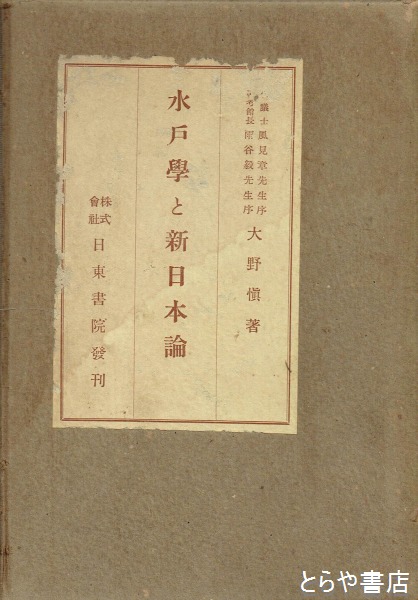 議士風見章先生序
考館長雨谷毅先生序
大野愼著
水戸學と新日本論
株式會社
日東書院發刊
とらや書店